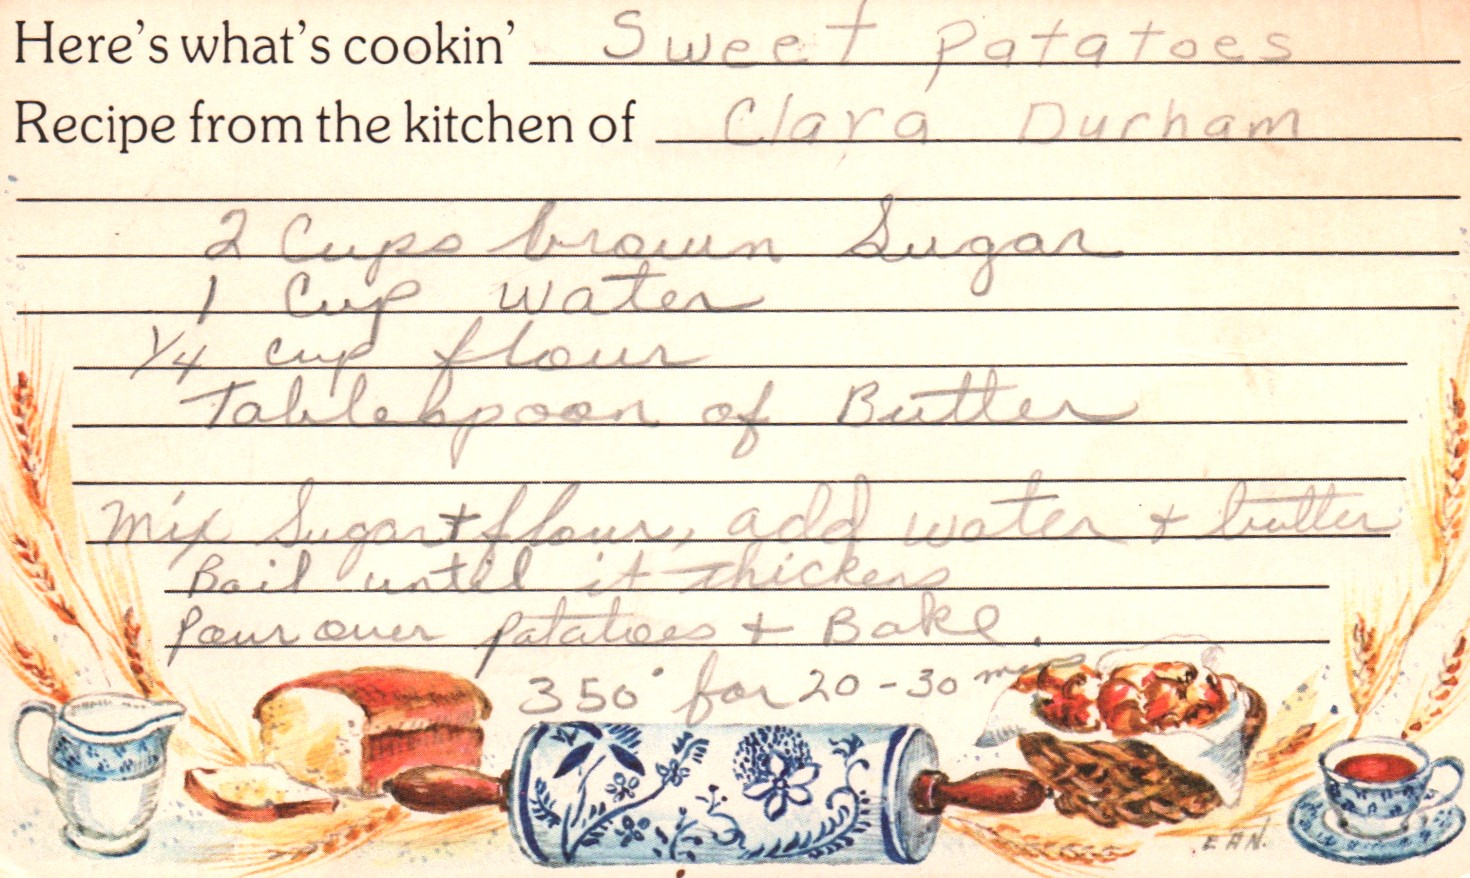 Here's what's cookin' Sweet Patatoes
Recipe from the kitchen of Clara Durham
2 Cups brown Sugar
1 Cup water
1/4 cup flour
Tablespoon of Butter
Mix Sugar + flour, add water + butter
Boil until it thickens
Pour over patatoes + Bake.
350° for 20-30 mins
E AN.